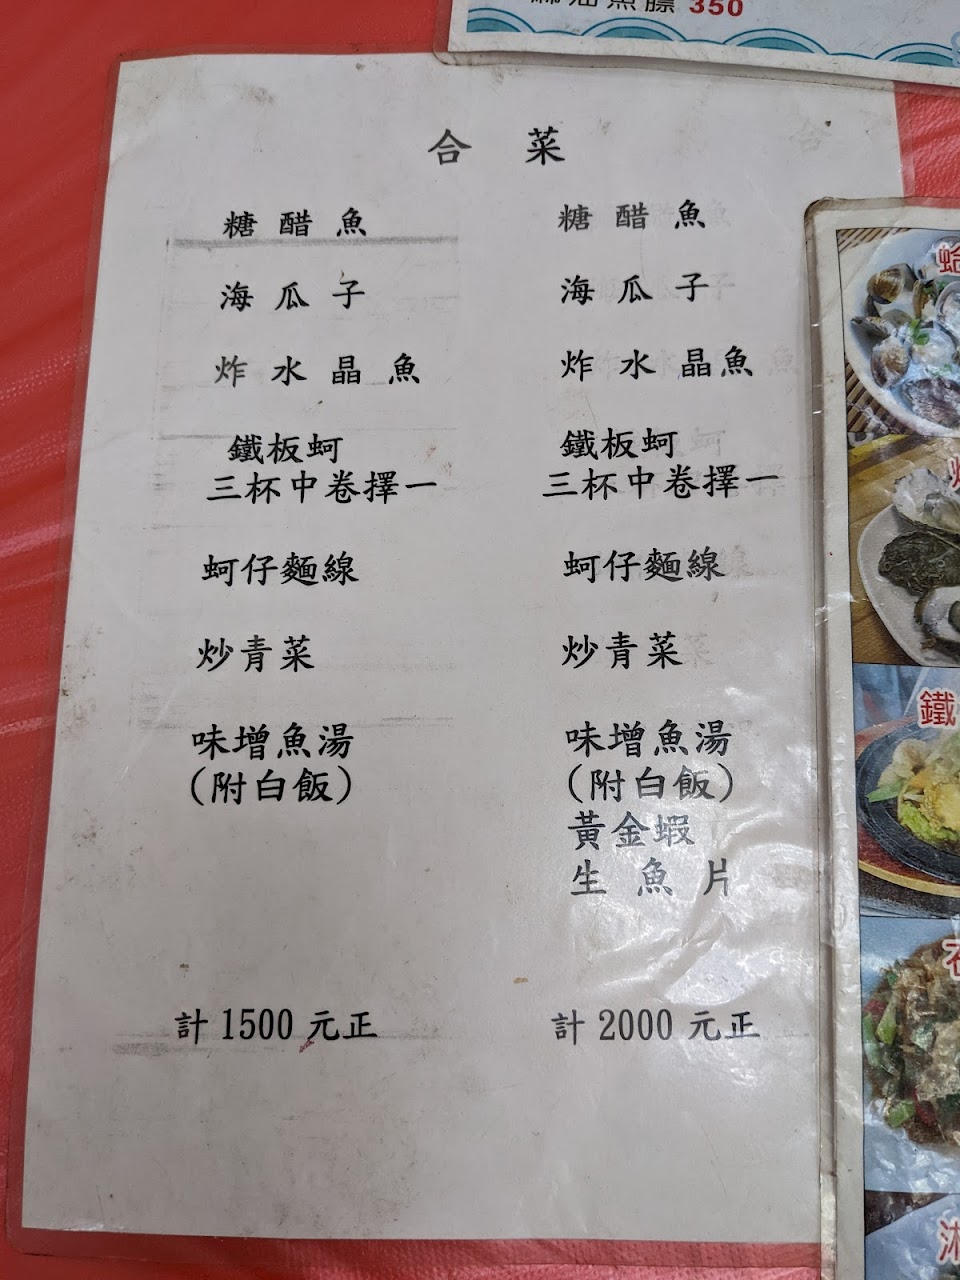 350
合 菜
糖 醋 魚
海 瓜 子
炸 水 晶 魚
鐵板蚵
三杯中卷擇一
蚵仔麵線
炒青菜
味增魚湯
(附白飯)
計 1500 元正
糖 醋 魚
海 瓜 子
炸 水 晶魚
鐵板蚵
三杯中卷擇一
蚵仔麵線
炒青菜
味增魚湯
(附白飯)
黃金蝦
生 魚 片
計 2000 元正
鐵